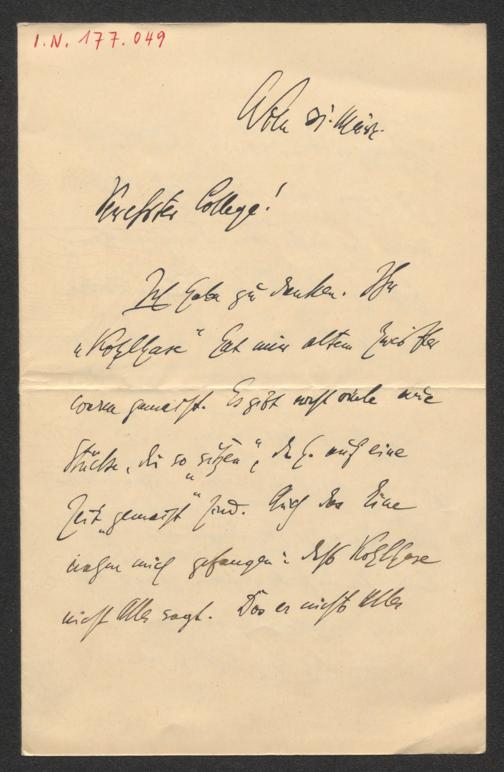 I.N. 177.049
Wien 31. März.
Verehrter College!
Ich habe zu danken. Ihr
„Kohlhase“ hat mir altem
warm gemacht. Es gibt nicht viele neue
Stücke, die so „sitzen“, d. h. auf eine
Zeit „gemacht“ sind. Auch das Eine
nahm mich gefangen: dass Kohlhase
nicht Alles sagt. Das er nicht Alles